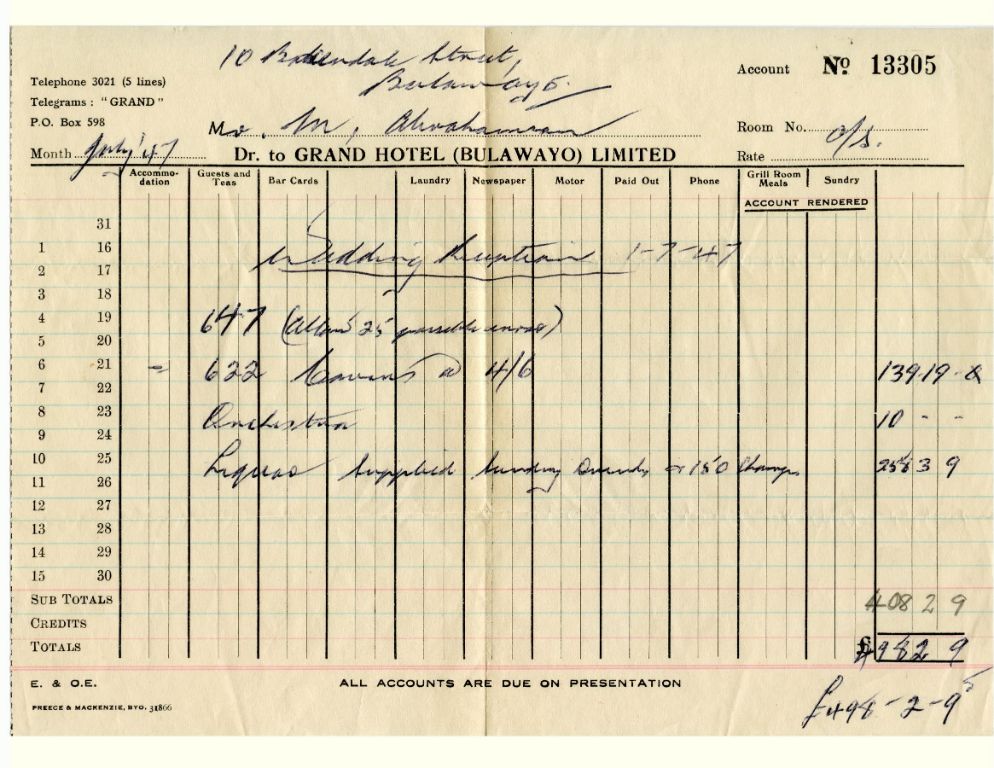 10 Street,
Bulawayo.
Telephone 3021 (5 lines)
Telegrams : "GRAND"
P.O. Box 598
Account No 13305
Mr. M. Abrahamson
Room No. o/s.
Month July '47
Dr. to GRAND HOTEL (BULAWAYO) LIMITED
Rate
Accommo-dation Guests and Teas Bar Cards Laundry Newspaper Motor Paid Out Phone Grill Room Meals Sundry
ACCOUNT RENDERED
31
1 16 Wedding Reception 1-7-47
2 17
3 18
4 19 647 (Allow 25 possible error)
5 20
6 21 622 Covers @ 4/6 139 19 -
7 22
8 23 Orchestra 10 - -
9 24
10 25 Liquor supplied Sundry 150 Champs 3 9
11 26
12 27
13 28
14 29
15 30
SUB TOTALS 408 2 9
CREDITS
TOTALS £ 2 9
E. & O.E.
ALL ACCOUNTS ARE DUE ON PRESENTATION
PREECE & MACKENZIE, BYO. 31866
£498-2-9